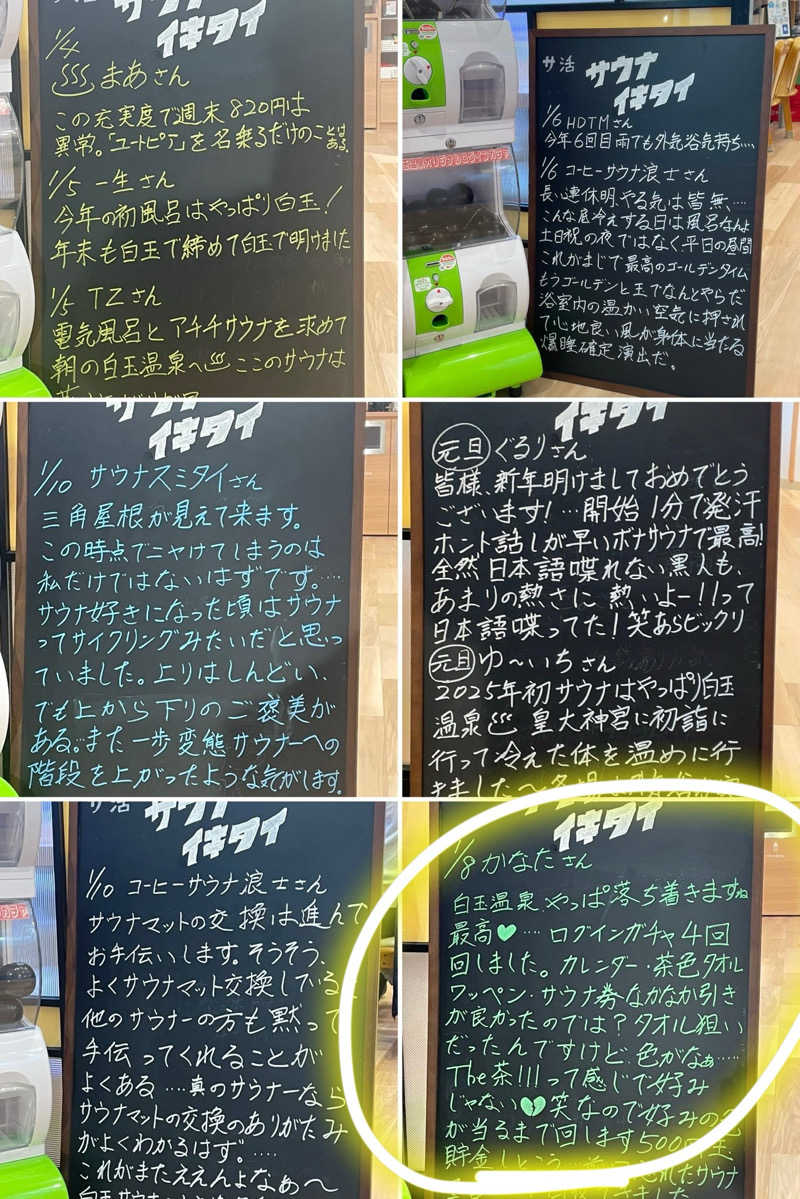 イキタイ
1/4
まあさん
この充実度で週末820円は
異常。「ユートピア」を名乗るだけのことはある。
1/5 一生さん
今年の初風呂はやっぱり白玉!
年末も白玉で締めて白玉で明けました
1/5 TZさん
電気風呂とアチチサウナを求めて
朝の白玉温泉へ♨ここのサウナは
サ活 サウナ
イキタイ
1/6 HDTMさん
今年6回目雨でも外気浴気持ち‥‥
1/6 コーヒーサウナ浪士さん
長い連休明、やる気は皆無、…
こんな底冷えする日は風呂なんよ
土日祝の夜ではなく平日の昼間
これがまじで最高のゴールデンタイム
もうゴールデンと玉でなんとやらだ
浴室内の温かい空気に押されて
心地良い風が身体に当たる
爆睡確定演出だ。
イキタイ
1/10 サウナスミタイさん
三角屋根が見えて来ます。
この時点でニヤけてしまうのは
私だけではないはずです。‥‥
サウナ好きになった頃はサウナ
ってサイクリングみたいだと思っ
ていました。上りはしんどい、
でも上から下りのご褒美が
ある。また一歩変態サウナーへの
階段を上がったような気がします。
イキタイ
元旦 ぐるりさん
皆様、新年明けましておめでとう
ございます!…開始1分で発汗
ホント話しが早いボナサウナで最高!
全然日本語喋れない黒人も、
あまりの熱さに熱いよー!!って
日本語喋ってた!笑あらビックリ
元旦 ゆ〜いちさん
2025年初サウナはやっぱり白玉
温泉♨皇大神宮に初詣に
行って冷えた体を温めに行
きました〜
サ活
イキタイ
1/10 コーヒーサウナ浪士さん
サウナマットの交換は進んで
お手伝いします。そうそう、
よくサウナマット交換している
他のサウナーの方も黙って
手伝ってくれることが
よくある‥‥真のサウナーなら
サウナマットの交換のありがたみ
がよくわかるはず。‥‥
これがまたええんよなぁ〜
イキタイ
1/8 かなたさん
白玉温泉、やっぱ落ち着きますね
最高♥‥‥ログインガチャ4回
回しました。カレンダー・茶色タオル
ワッペン・サウナ券なかなか引き
が良かったのでは?タオル狙い
だったんですけど、色がなぁ‥‥
The茶!!!って感じで好み
じゃない💔笑なので好みの色
が当るまで回します500円玉
貯金